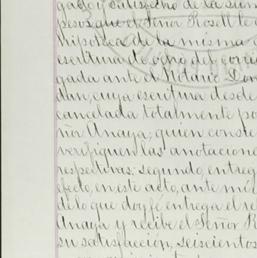 gado y satisfecho de la sum
pesos que el Señor Rosell le
hipoteca de la misma
escritura de
gada ante el Notario Don
dan, cuya escritura desde
cancelada totalmente po
ñor Anaya, quien consie
verifiquen las anotacione
respectivas. Segundo, entreg
efecto, en este acto, ante mí
de lo que doy fé entrega el re
Anaya y recibe el Señor R
su satisfacción, seiscientos